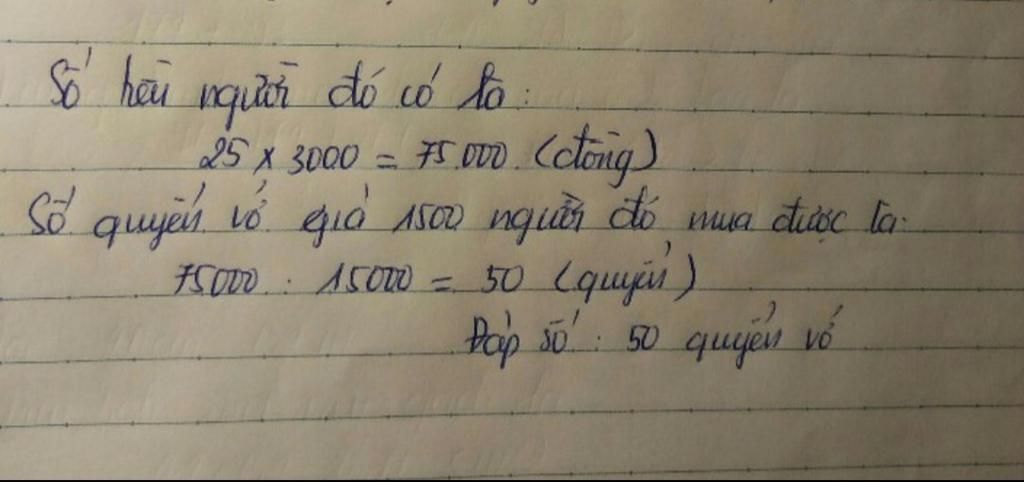 Số tiền người đó có là:
25 x 3000 = 75 000 (đồng)
Số quyển vở giá 1500 người đó mua được là:
75000 : 15000 = 50 (quyển)
Đáp số : 50 quyển vở